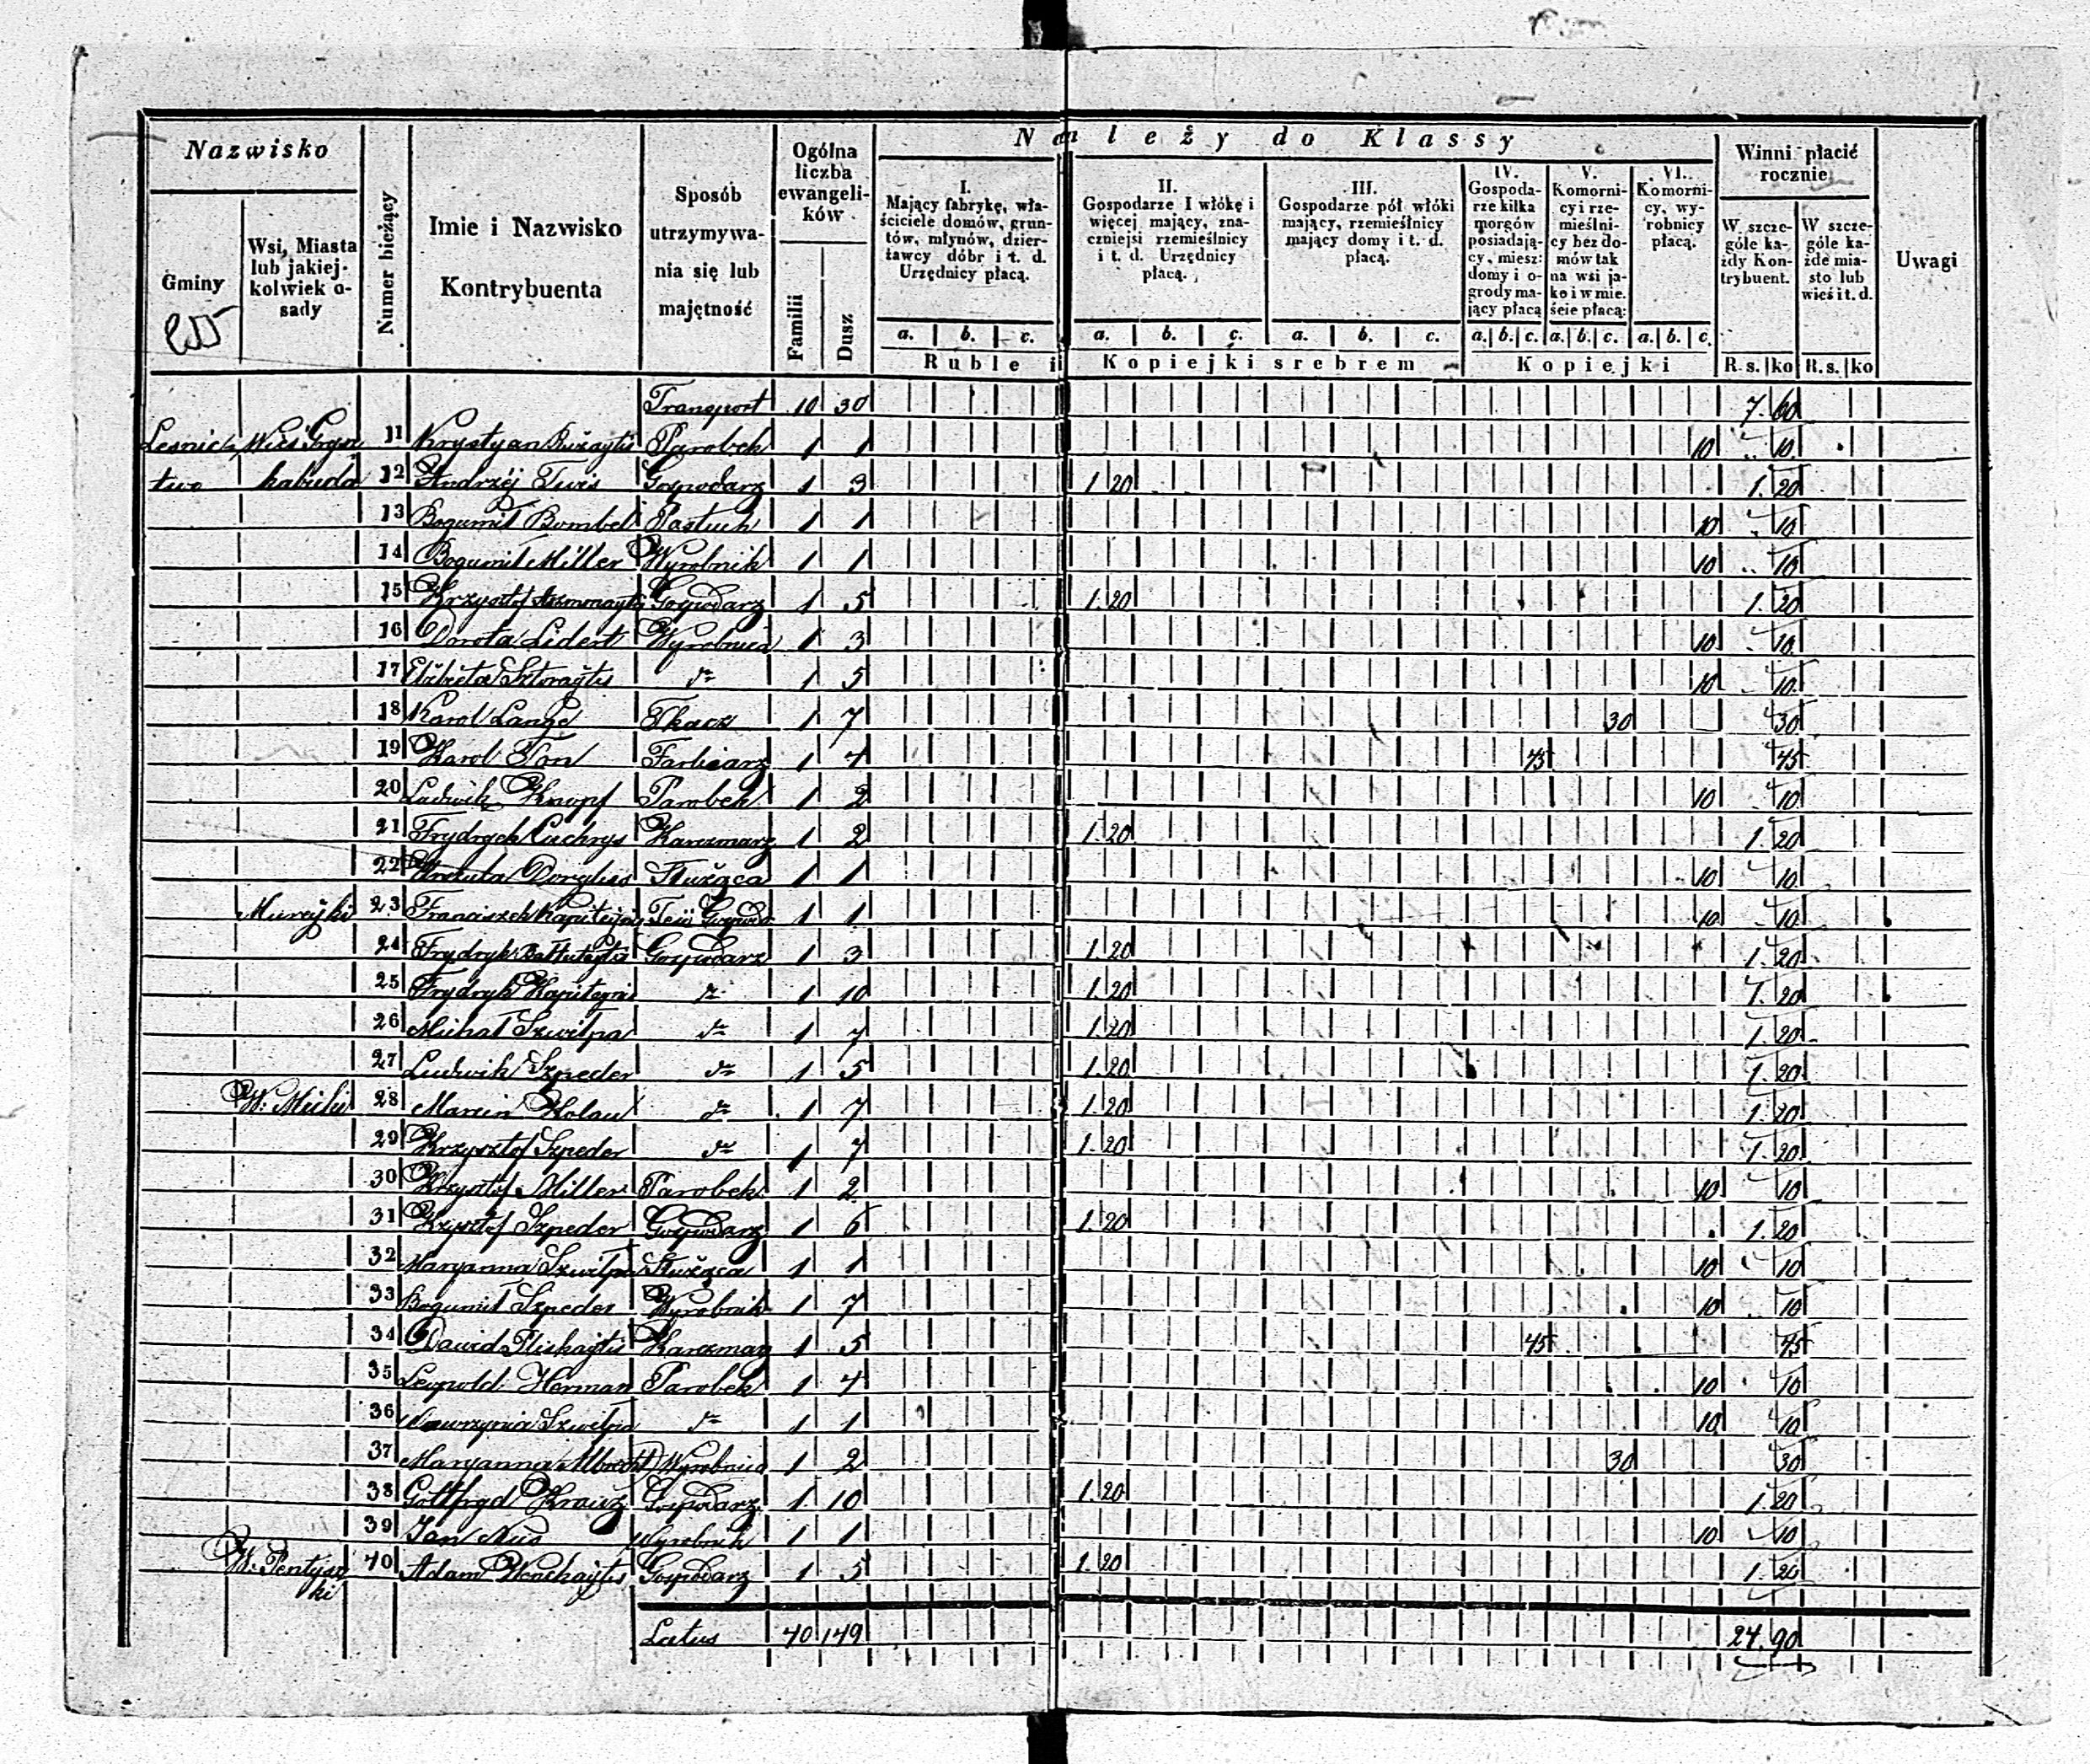 Należy do Klassy
Nazwisko
Gminy
Wsi, Miasta lub jakiejkolwiek o-
sady
Numer bieżący
Imie i Nazwisko
Kontrybuenta
Sposób
utrzymywa-
nia się lub
majętność
Ogólna
liczba
ewangeli-
ków
Familii
Dusz
I.
Mający fabrykę, wła-
ściciele domów, grun-
tów, młynów, dzier-
żawcy dóbr i t. d.
Urzędnicy płacą.
II.
Gospodarze 1 włókę i
więcej mający, zna-
czniejsi rzemieślnicy
i t. d. Urzędnicy
płacą.
III.
Gospodarze pół włóki
mający, rzemieślnicy
mający domy i t. d.
płacą.
IV.
Gospoda-
rze kilka
morgów
posiadają-
cy, miesz:
domy i o-
grody ma-
jący płacą
V.
Komorni-
cy i rze-
mieślni-
cy bez do-
mów tak
na wsi ja-
ko i w mie.
ście płacą:
VI.
Komorni-
cy, wy-
robnicy
płacą.
Winni płacić
rocznie
W szcze-
góle ka-
żdy Kon-
trybuent.
W szcze-
góle ka-
żde mia-
sto lub
wieś i t. d.
Uwagi
a. b. c. a. b. c. a. b. c. a. b. c. a. b. c. a. b. c.
Ruble i Kopiejki srebrem Kopiejki R. s. ko R. s. ko
Transport 10 30 7. 60
Lesnic- Wieś 11 Krystyan Parobek 1 1 10 10
two kabuda 12 Andrzéj Gospodarz 1 3 1. 20 1. 20
13 Bogumił Bombel Pastuch 1 1 10 10
14 Bogumił Miller Wyrobnik 1 1 10 10
15 Krzysztof Gospodarz 1 5 1. 20 1. 20
16 Dorota Lidert Wyrobnica 1 3 10 10
17 Elżbieta Sztoraytis dto 1 5 10 10
18 Karol Lange Tkacz 1 7 30 30
19 Karol Ton Farbiarz 1 4 45 45
20 Ludwik Knopf Parobek 1 2 10 10
21 Frydrych Karczmarz 1 2 1. 20 1. 20
22 Służąca 1 1 10 10
23 Franciszek 1 1 10 10
24 Frydryk Gospodarz 1 3 1. 20 1. 20
25 Frydryk dto 1 10 1. 20 1. 20
26 Michał Szwilpa dto 1 7 1. 20 1. 20
27 Ludwik Szpeder dto 1 5 1. 20 1. 20
28 Marcin Kolau dto 1 7 1. 20 1. 20
29 Krzysztof Szpeder dto 1 7 1. 20 1. 20
30 Krzysztof Miller Parobek 1 2 10 10
31 Krzysztof Szpeder Gospodarz 1 6 1. 20 1. 20
32 Maryanna Szwilpa Służąca 1 1 10 10
33 Bogumił Szpeder Wyrobnik 1 7 10 10
34 Dawid Pliskaytis Karczmarz 1 5 45 45
35 Leopold Herman Parobek 1 4 10 10
36 Szwilpa dto 1 1 10 10
37 Maryanna Wyrobnica 1 2 30 30
38 Gottfryd Krauz Gospodarz 1 10 1. 20 1. 20
39 Jan Wyrobnik 1 1 10 10
40 Adam Gospodarz 1 5 1. 20 1. 20
ki
Latus 40 149 24. 90